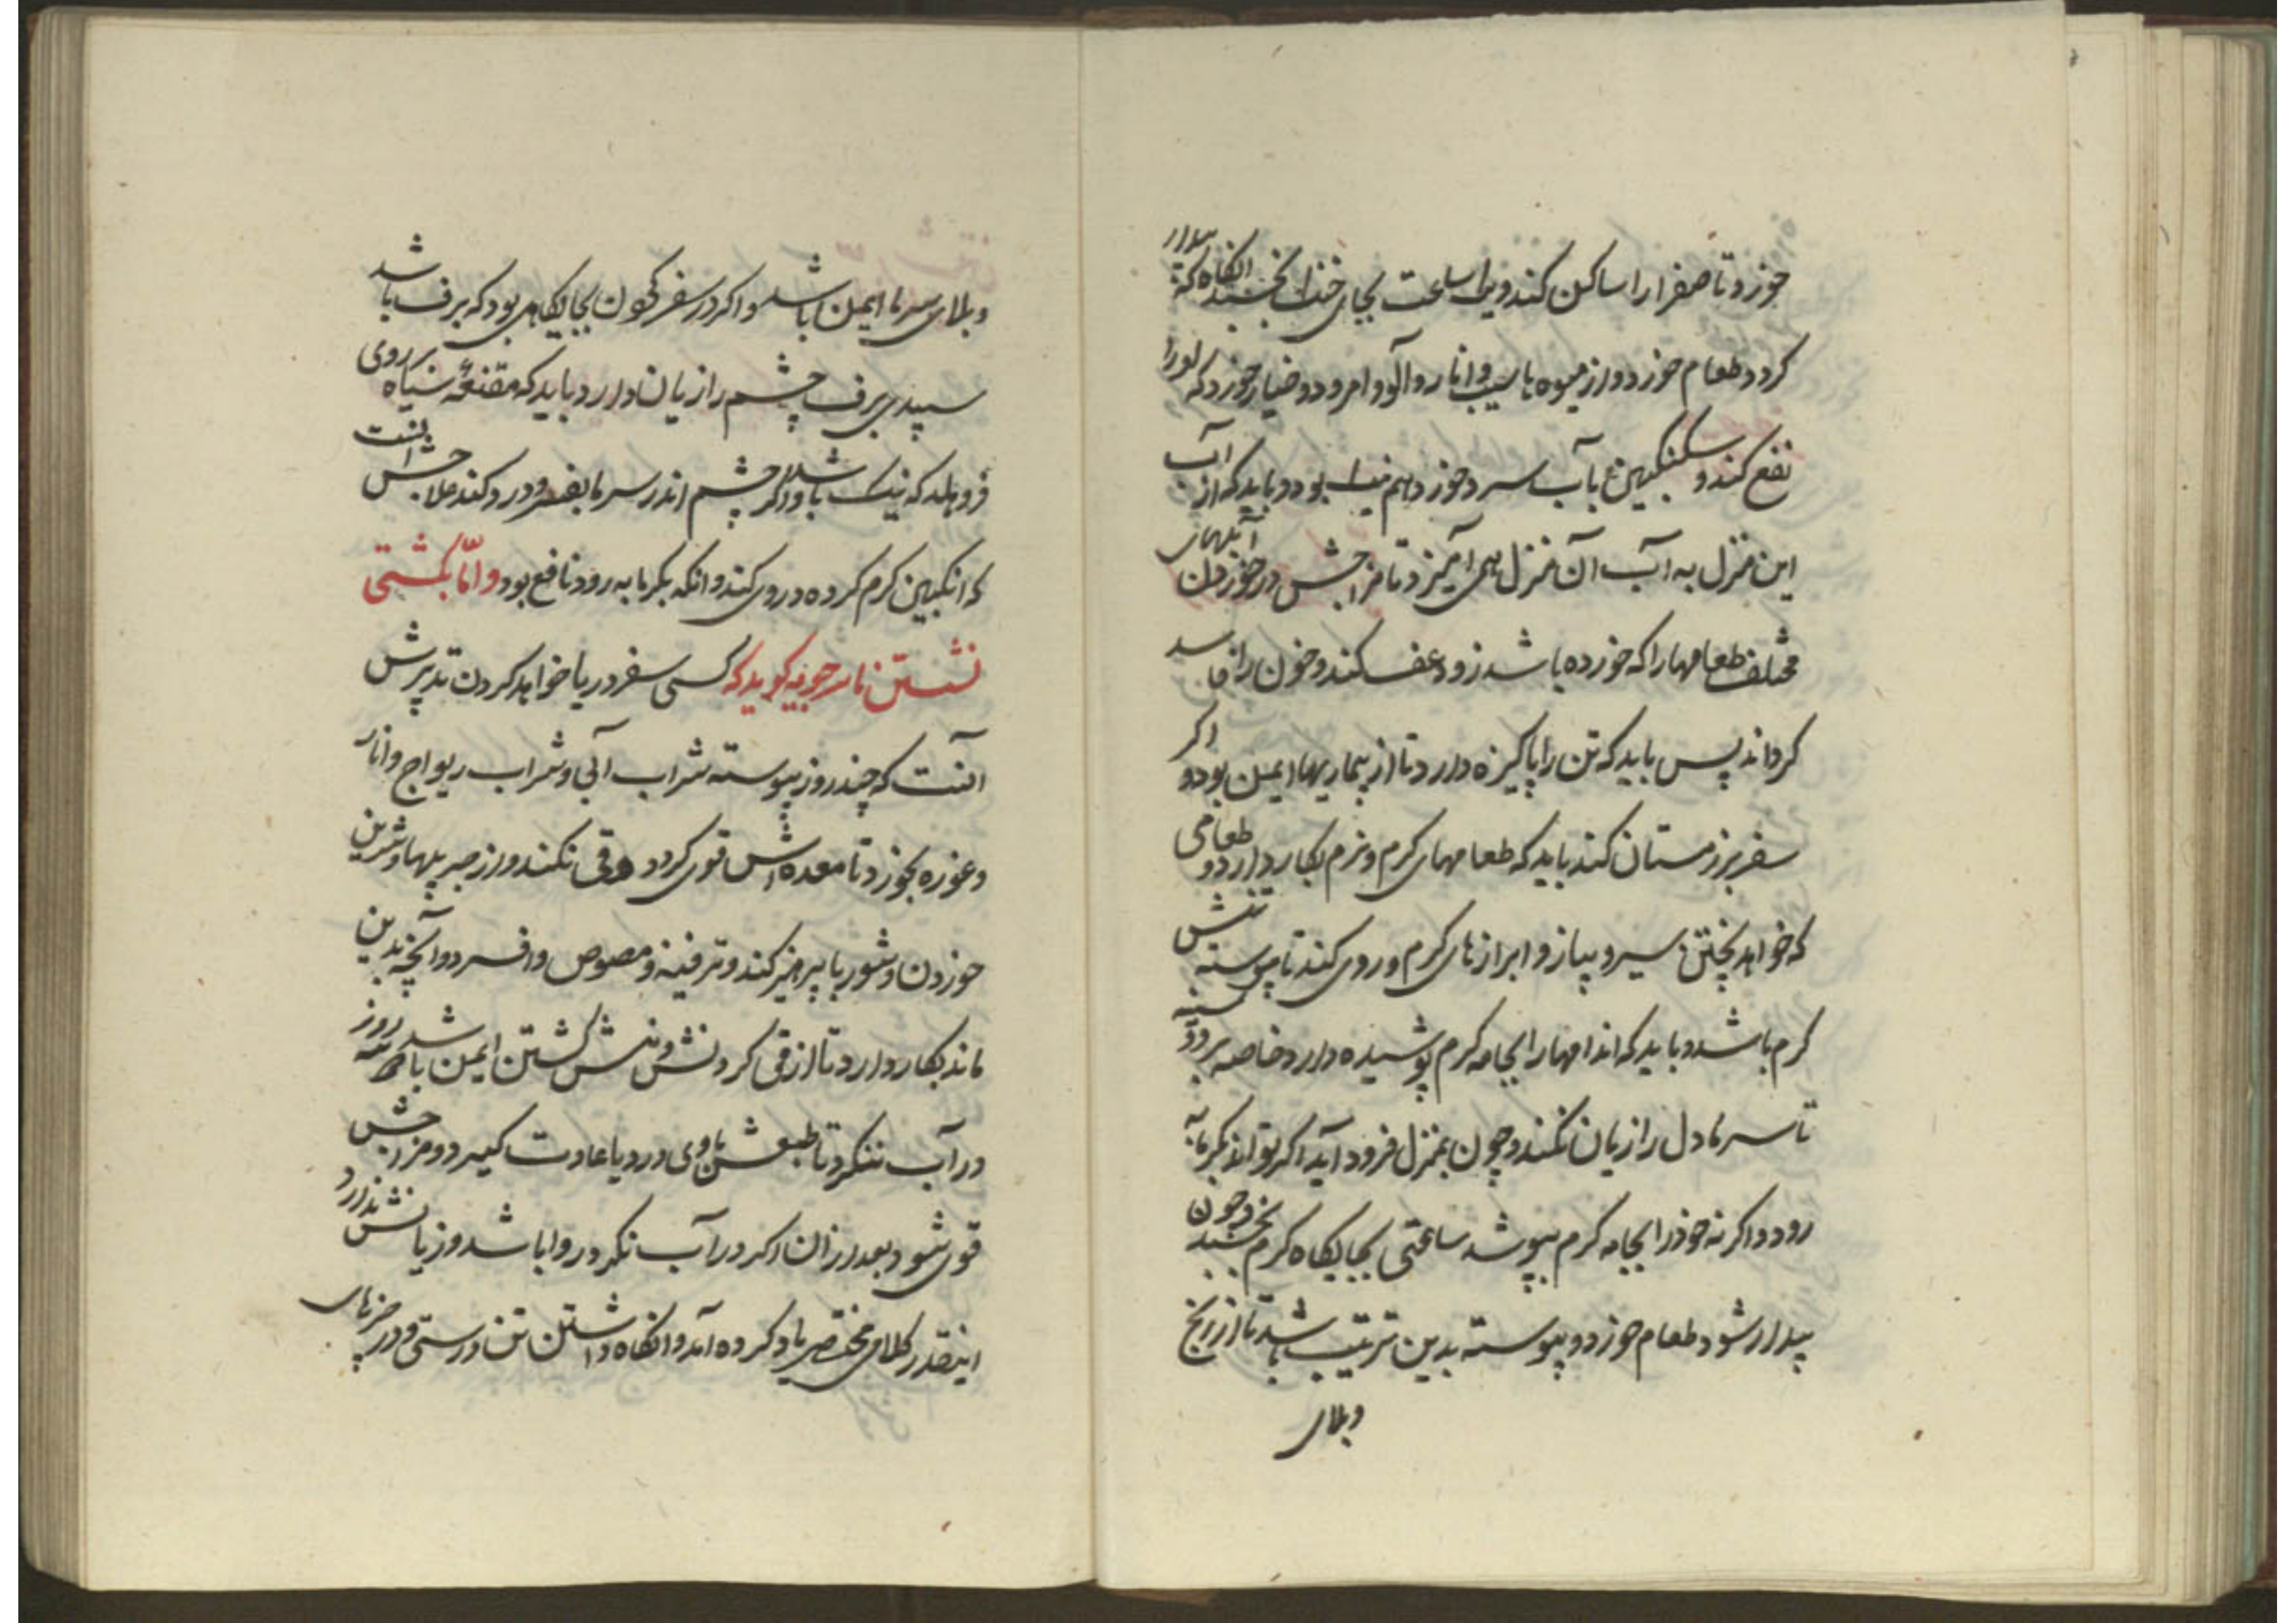 خورد تا صفرا را ساکن کند و یک ساعت بجای خنک بخسبد انکاه که بیدار
کردد طعام خورد و از میوه ها سیب و انار و آلو و امرود و خیار خورد که او را
نفع کند و سکنکبین با آب سرد خورد هم نیک بود و باید که از آب
این منزل به آب آن منزل همی آمیزد تا مزاجش در خوردن آبهای
مختلف طعامها را که خورده باشد زود عفن کند و خون را فاسد
کرداند پس باید که تن را پاکیزه دارد تا از بیماریها ایمن بود و اکر
سفر بزمستان کند باید که طعامهای کرم و نرم بکار دارد و طعامی
که خواهد پختن سیر و پیاز و ابزارهای کرم در وی کند تا پیوسته تنش
کرم باشد و باید که اندامها را بجامه کرم پوشیده دارد خاصه بر و سینه
تا سرما دل را زیان نکند و چون بمنزل فرود آید اکر تواند بکرمابه
رود و اکر نه خود را بجامه کرم بپوشد ساعتی بجایکاه کرم بخسبد و چون
بیدار شود طعام خورد و پیوسته بدین ترتیب باشد تا از رنج
وبلای
وبلای سرما ایمن باشد و اکر در سفر کون بجایکاهی بود که برف باشد
سپیدی برف چشم را زیان دارد باید که مقنعه سیاه بر روی
فرو هلد که نیک باشد و اکر چشم اندر سرما بفسرد و درد کند علاجش انست
که انکبین کرم کرده در وی کند و انکه بکرمابه رود نافع بود و امّا بکشتی
نشستن ماسرجویه کوید که کسی سفر دریا خواهد کردن تدبیرش
انست که چند روز پیوسته شراب آبی و شراب ریواج و انار
و غوره بخورد تا معده اش قوی کردد و قی نکند و از چربیها و شیرین
خوردن و شوربا پرهیز کند و ترفینه و مصوص و افسرد و آنچه بدین
ماند بکار دارد تا از قی کردنش و منش کشتن ایمن باشد و سه روز
در آب ننکرد تا طبعش باوی دریا عادت کیرد و مزاجش
قوی شود و بعد از ان اکر در آب نکرد روا باشد و زیانش ندارد
اینقدر کلامی مختصر یاد کرده آمد و انکاه داشتن تن درستی و در چیزهای